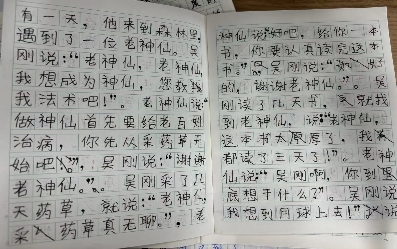 有一天，他来到森林里，
遇到了一位老神仙。吴
刚说：“老神仙，老神仙，
我想成为神仙，您教教
我法术吧！”。老神仙说：“
做神仙首先要给老百姓
治病，你先从采药草开
始吧。”，吴刚说：“谢谢
老神仙。”。吴刚采了几
天药草，就说：“老神仙，
采药草真无聊。”。老
神仙说“好吧，给你一本
书，你要认真读完这本
书。”吴刚说：“
的，谢谢老神仙。”。吴
刚读了几天书，又就找
到老神仙，说：“老神仙，
这本书太厚厚了，我
都读了三天了！”。老神
仙说：“吴刚啊，你到
底想干什么了”。吴刚说
“我想到月球上去！”说